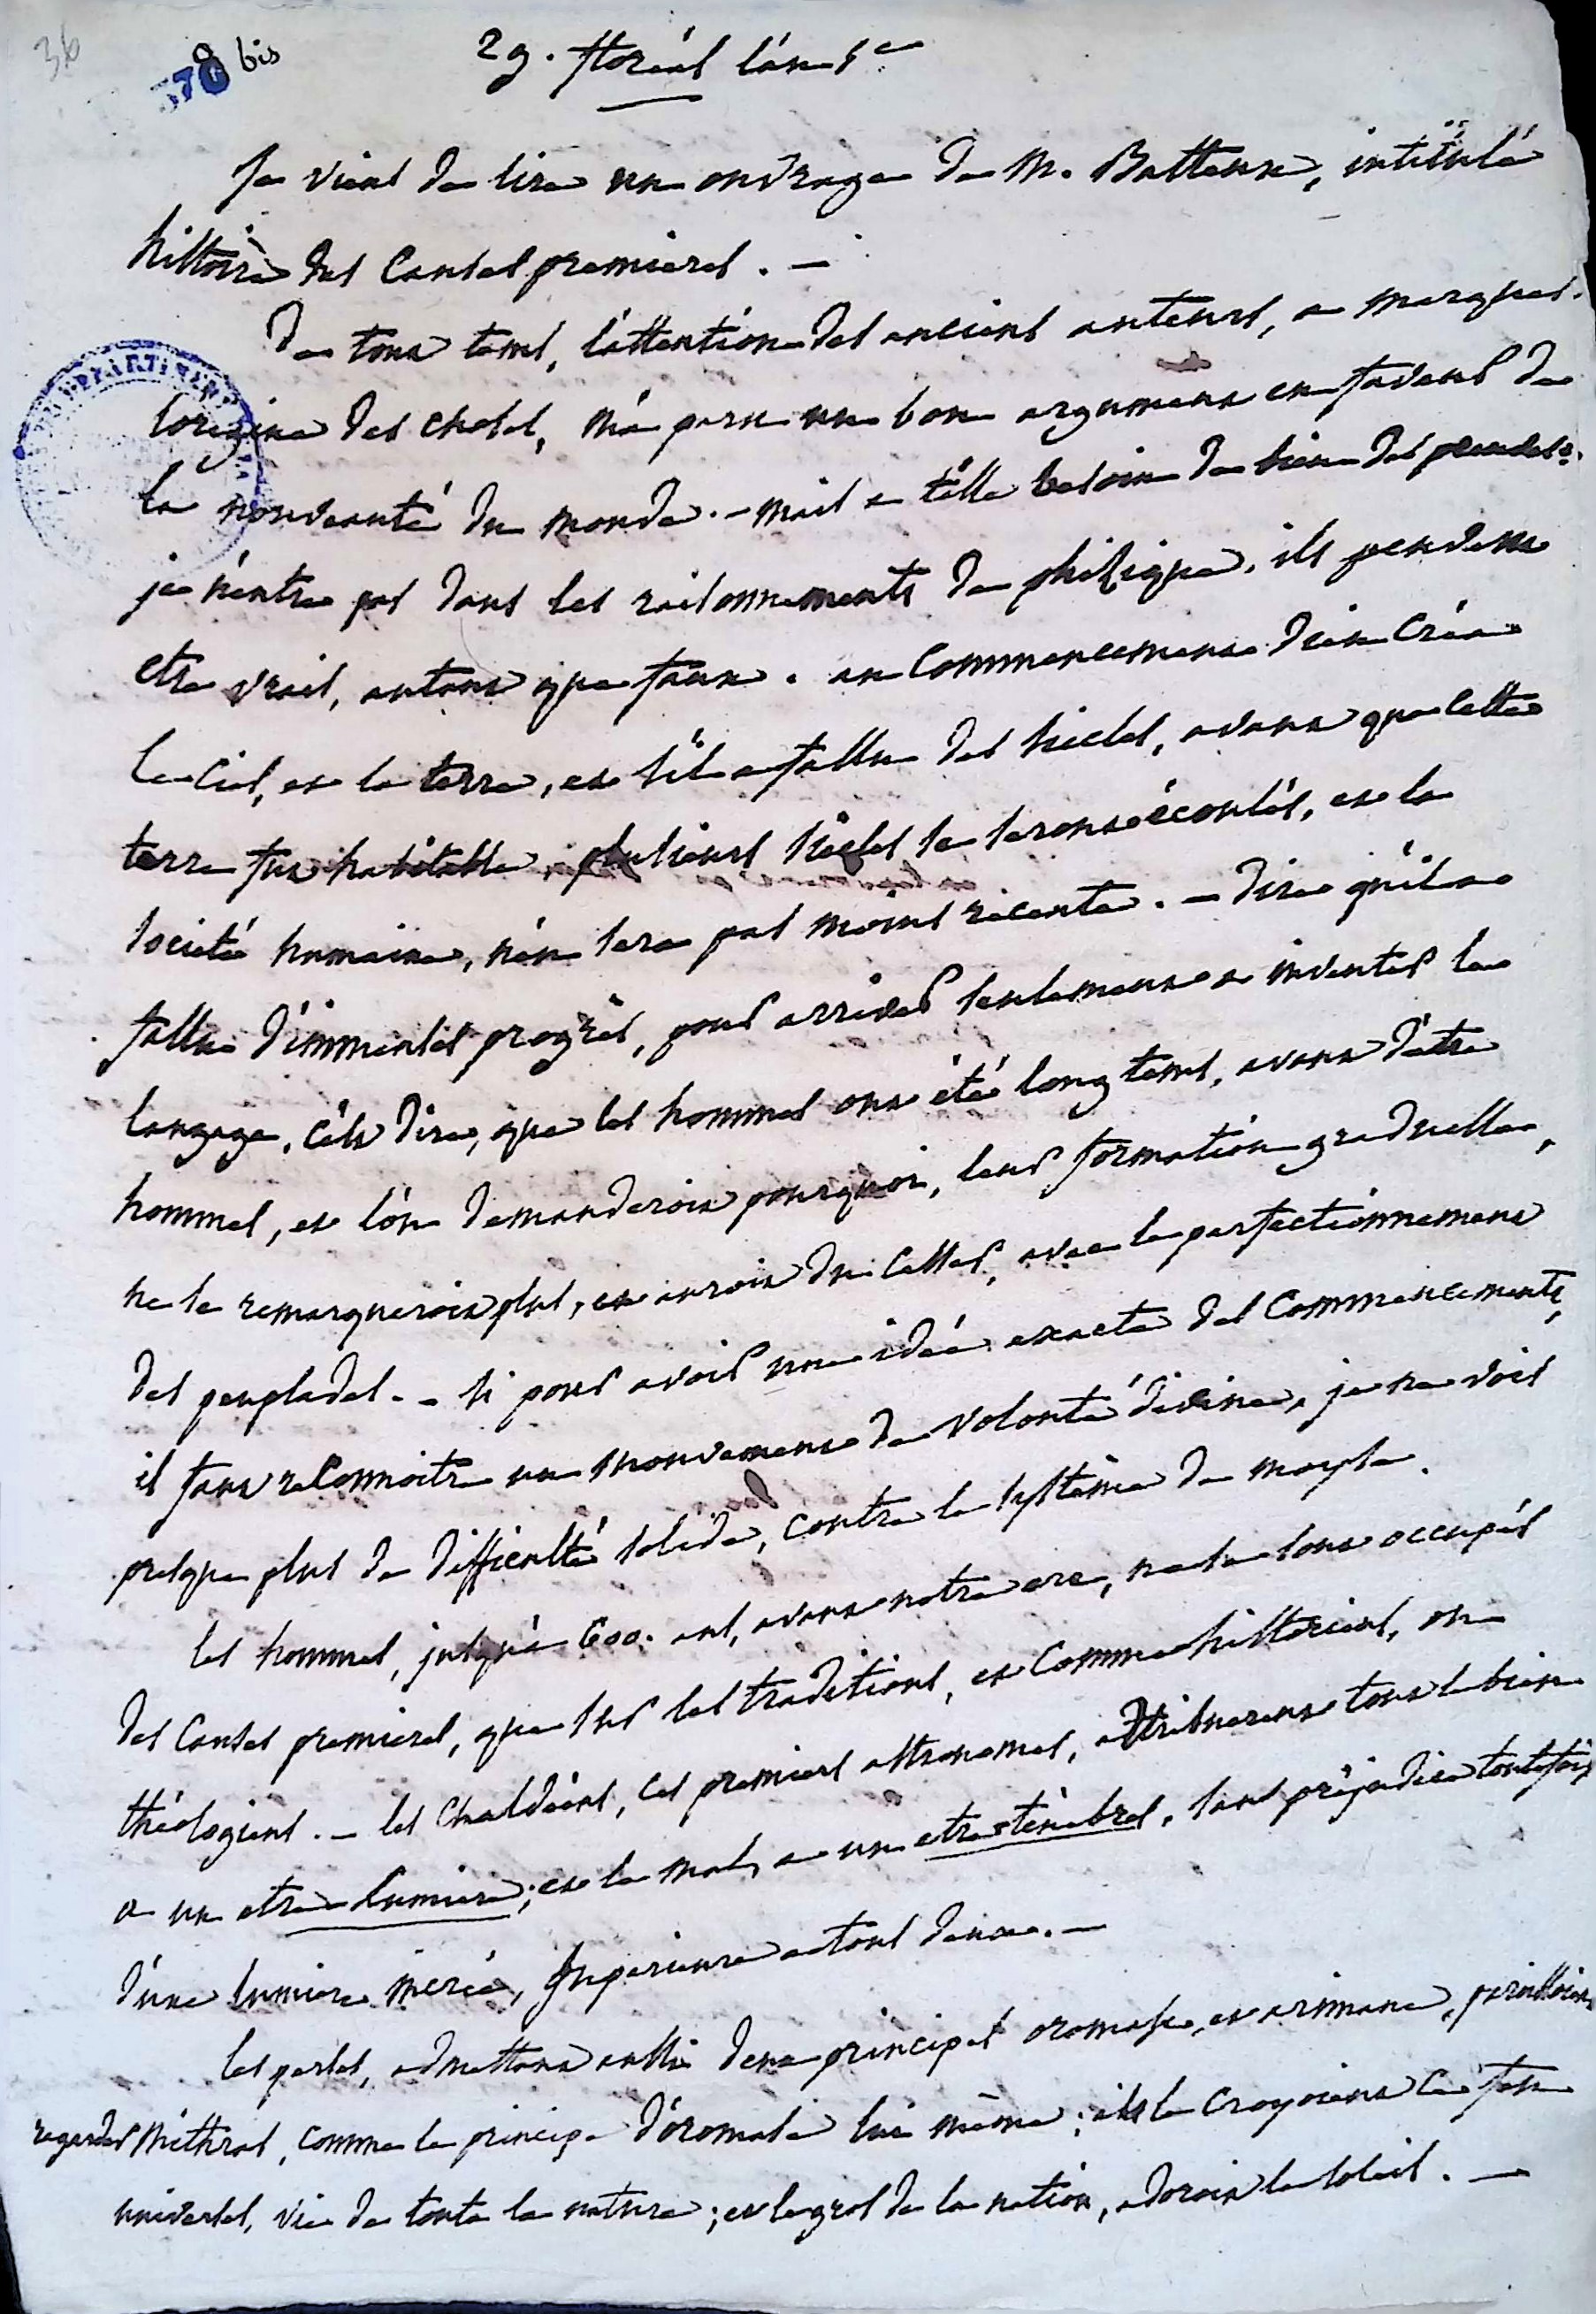 36
378 bis
29. floréal l'an 5e
Je viens de lire un ouvrage de M. Batteux, intitulé
histoire des Causes premieres. —
De tout tems, l'attention des anciens auteurs, a marquer
l'origine des choses, m'a paru un bon argument en faveur de
la nouveauté du monde. — mais a t'elle besoin de bien des preuves.
je n'entre pas dans les raisonnements de phisique, ils peuvent
etre vrais, autant que faux. au Commencement dieu Créa
le Ciel, et la terre, et s'il a fallu des siecles, avant que cette
terre fut habitable, plusieurs siecles se seront écoulés, et la
société humaine, n'en sera pas moins récente. — dire qu'il a
fallu d'immenses progrès, pour arriver seulement a inventer le
langage, c'est dire, que les hommes ont été long tems, avant d'etre
hommes, et l'on demanderoit pourquoi, leur formation graduelle,
ne se remarqueroit plus, et auroit du Cesser, avec le perfectionnement
des peuplades. — si pour avoir une idée exacte des Commencements,
il faut reConnoitre un mouvement de volonté divine, je ne vois
presque plus de difficulté solide, contre le systême de moyse.
les hommes, jusqu'à 600. ans, avant notre ere, ne se sont occupés
des Causes premieres, que sur les traditions, et Comme historiens, ou
théologiens. — les Chaldéens, ces premiers astronomes, attribuerent tout le bien
a un etre Lumiere; et le mal, a un etre ténebres, sans préjudice toutefois
d'une lumiere incréé, superieure a tous deux. —
les perses, admettant aussi deux principes oromase, et arimane,
regarder Mithras, comme le principe d'oromase lui même; ils le croyoient ce feu
universel, vie de toute la nature; et le gros de la nation, adoroit le soleil. —